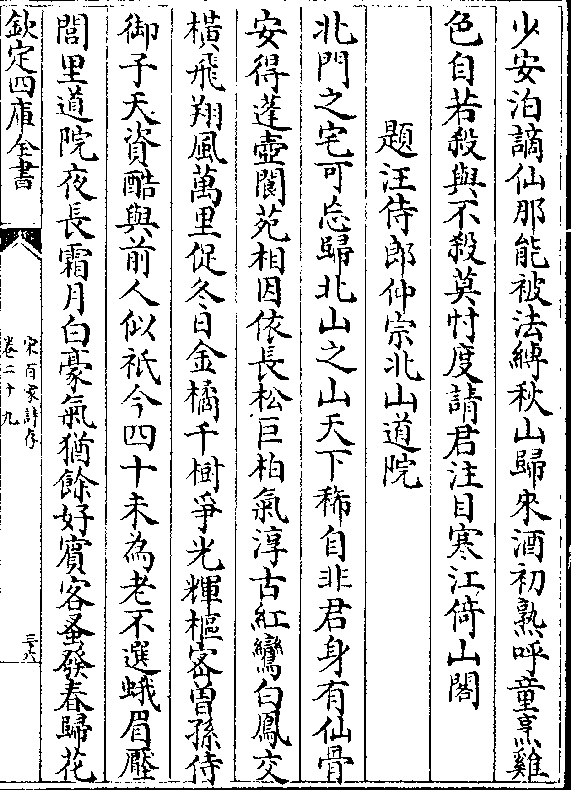 少安泊謫仙那能被法縛秋山歸來酒初熟呼童烹雞
色自若殺與不殺莫忖度請君注目寒江倚山閣
題汪侍郎仲宗北山道院
北門之宅可忘歸北山之山天下稀自非君身有仙骨
安得蓬壺閬苑相因依長松巨柏氣淳古紅鸞白鳳交
橫飛翔風萬里促冬日金橘千樹爭光輝樞密曽孫侍
御子天資酷與前人似祇今四十未為老不選蛾眉壓
閭里道院夜長霜月白豪氣猶餘好賓客蚤發春歸花
欽定四庫全書
宋百家詩存
卷二十九
三六